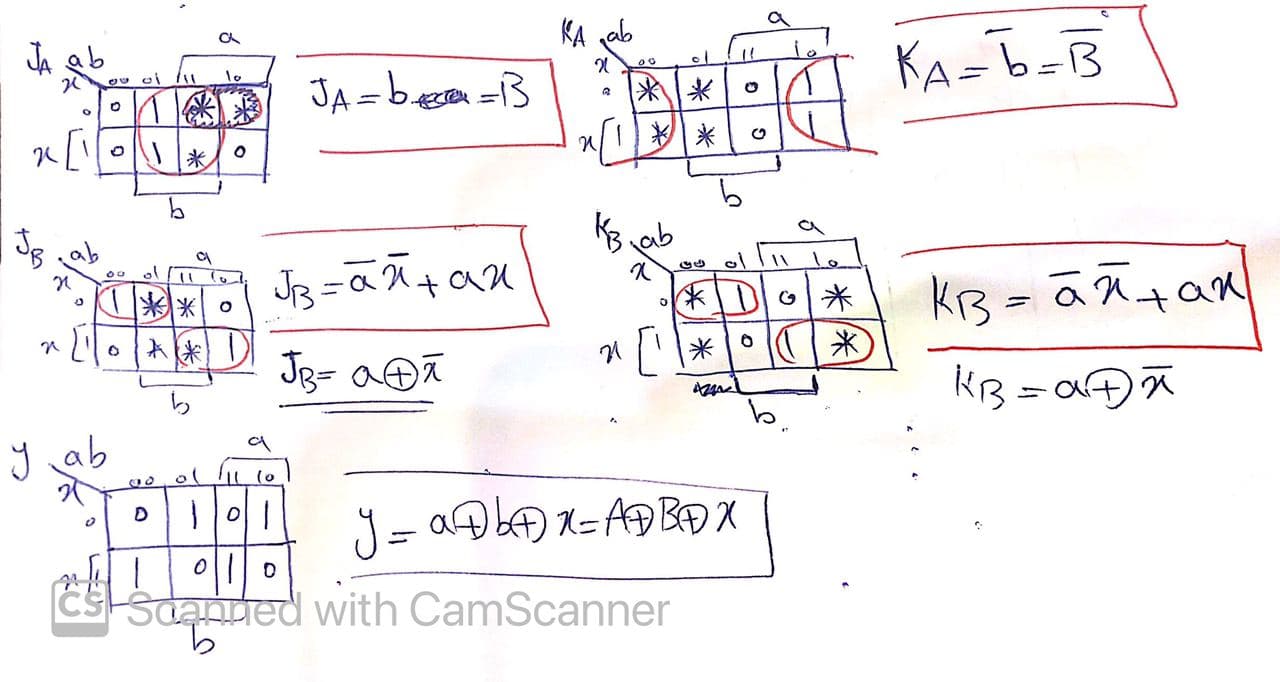 J_A ab a
x 00 01 11 10
0 0 1 * *
x [ 1 0 1 * 0
b
J_A = b = B
K_A ab a
x 00 01 11 10
0 * * 0 1
x [ 1 * * 0 1
b
K_A = b̅ = B̅
J_B ab a
x 00 01 11 10
0 1 * * 0
x [ 1 0 * * 1
b
J_B = a̅ x̅ + a x
J_B = a ⊕ x̅
K_B ab a
x 00 01 11 10
0 * 1 0 *
x [ 1 * 0 1 *
b
K_B = a̅ x̅ + a x
K_B = a ⊕ x̅
y ab a
x 00 01 11 10
0 0 1 0 1
x [ 1 1 0 1 0
b
y = a ⊕ b ⊕ x = A ⊕ B ⊕ x
CS Scanned with CamScanner